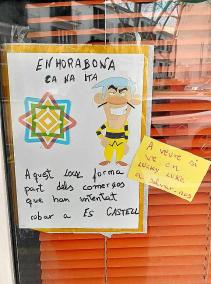 ENHORABONA
ZA NA ITA
AQUEST LOCAL forma
part dels comerços
que han intentat
robar a ES CASTELL
A veure si
ve en
LUCKY LUKE
a salvar-nos